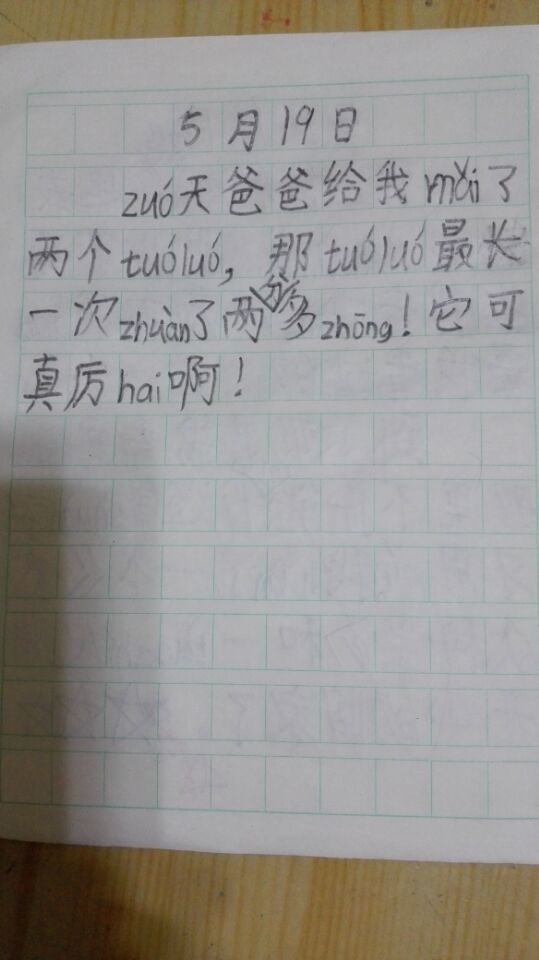 5月19日
zuó天爸爸给我mǎi了
两个tuóluó，那tuóluó最长
一次zhuàn了两分多zhōng！它可
真厉hai啊！